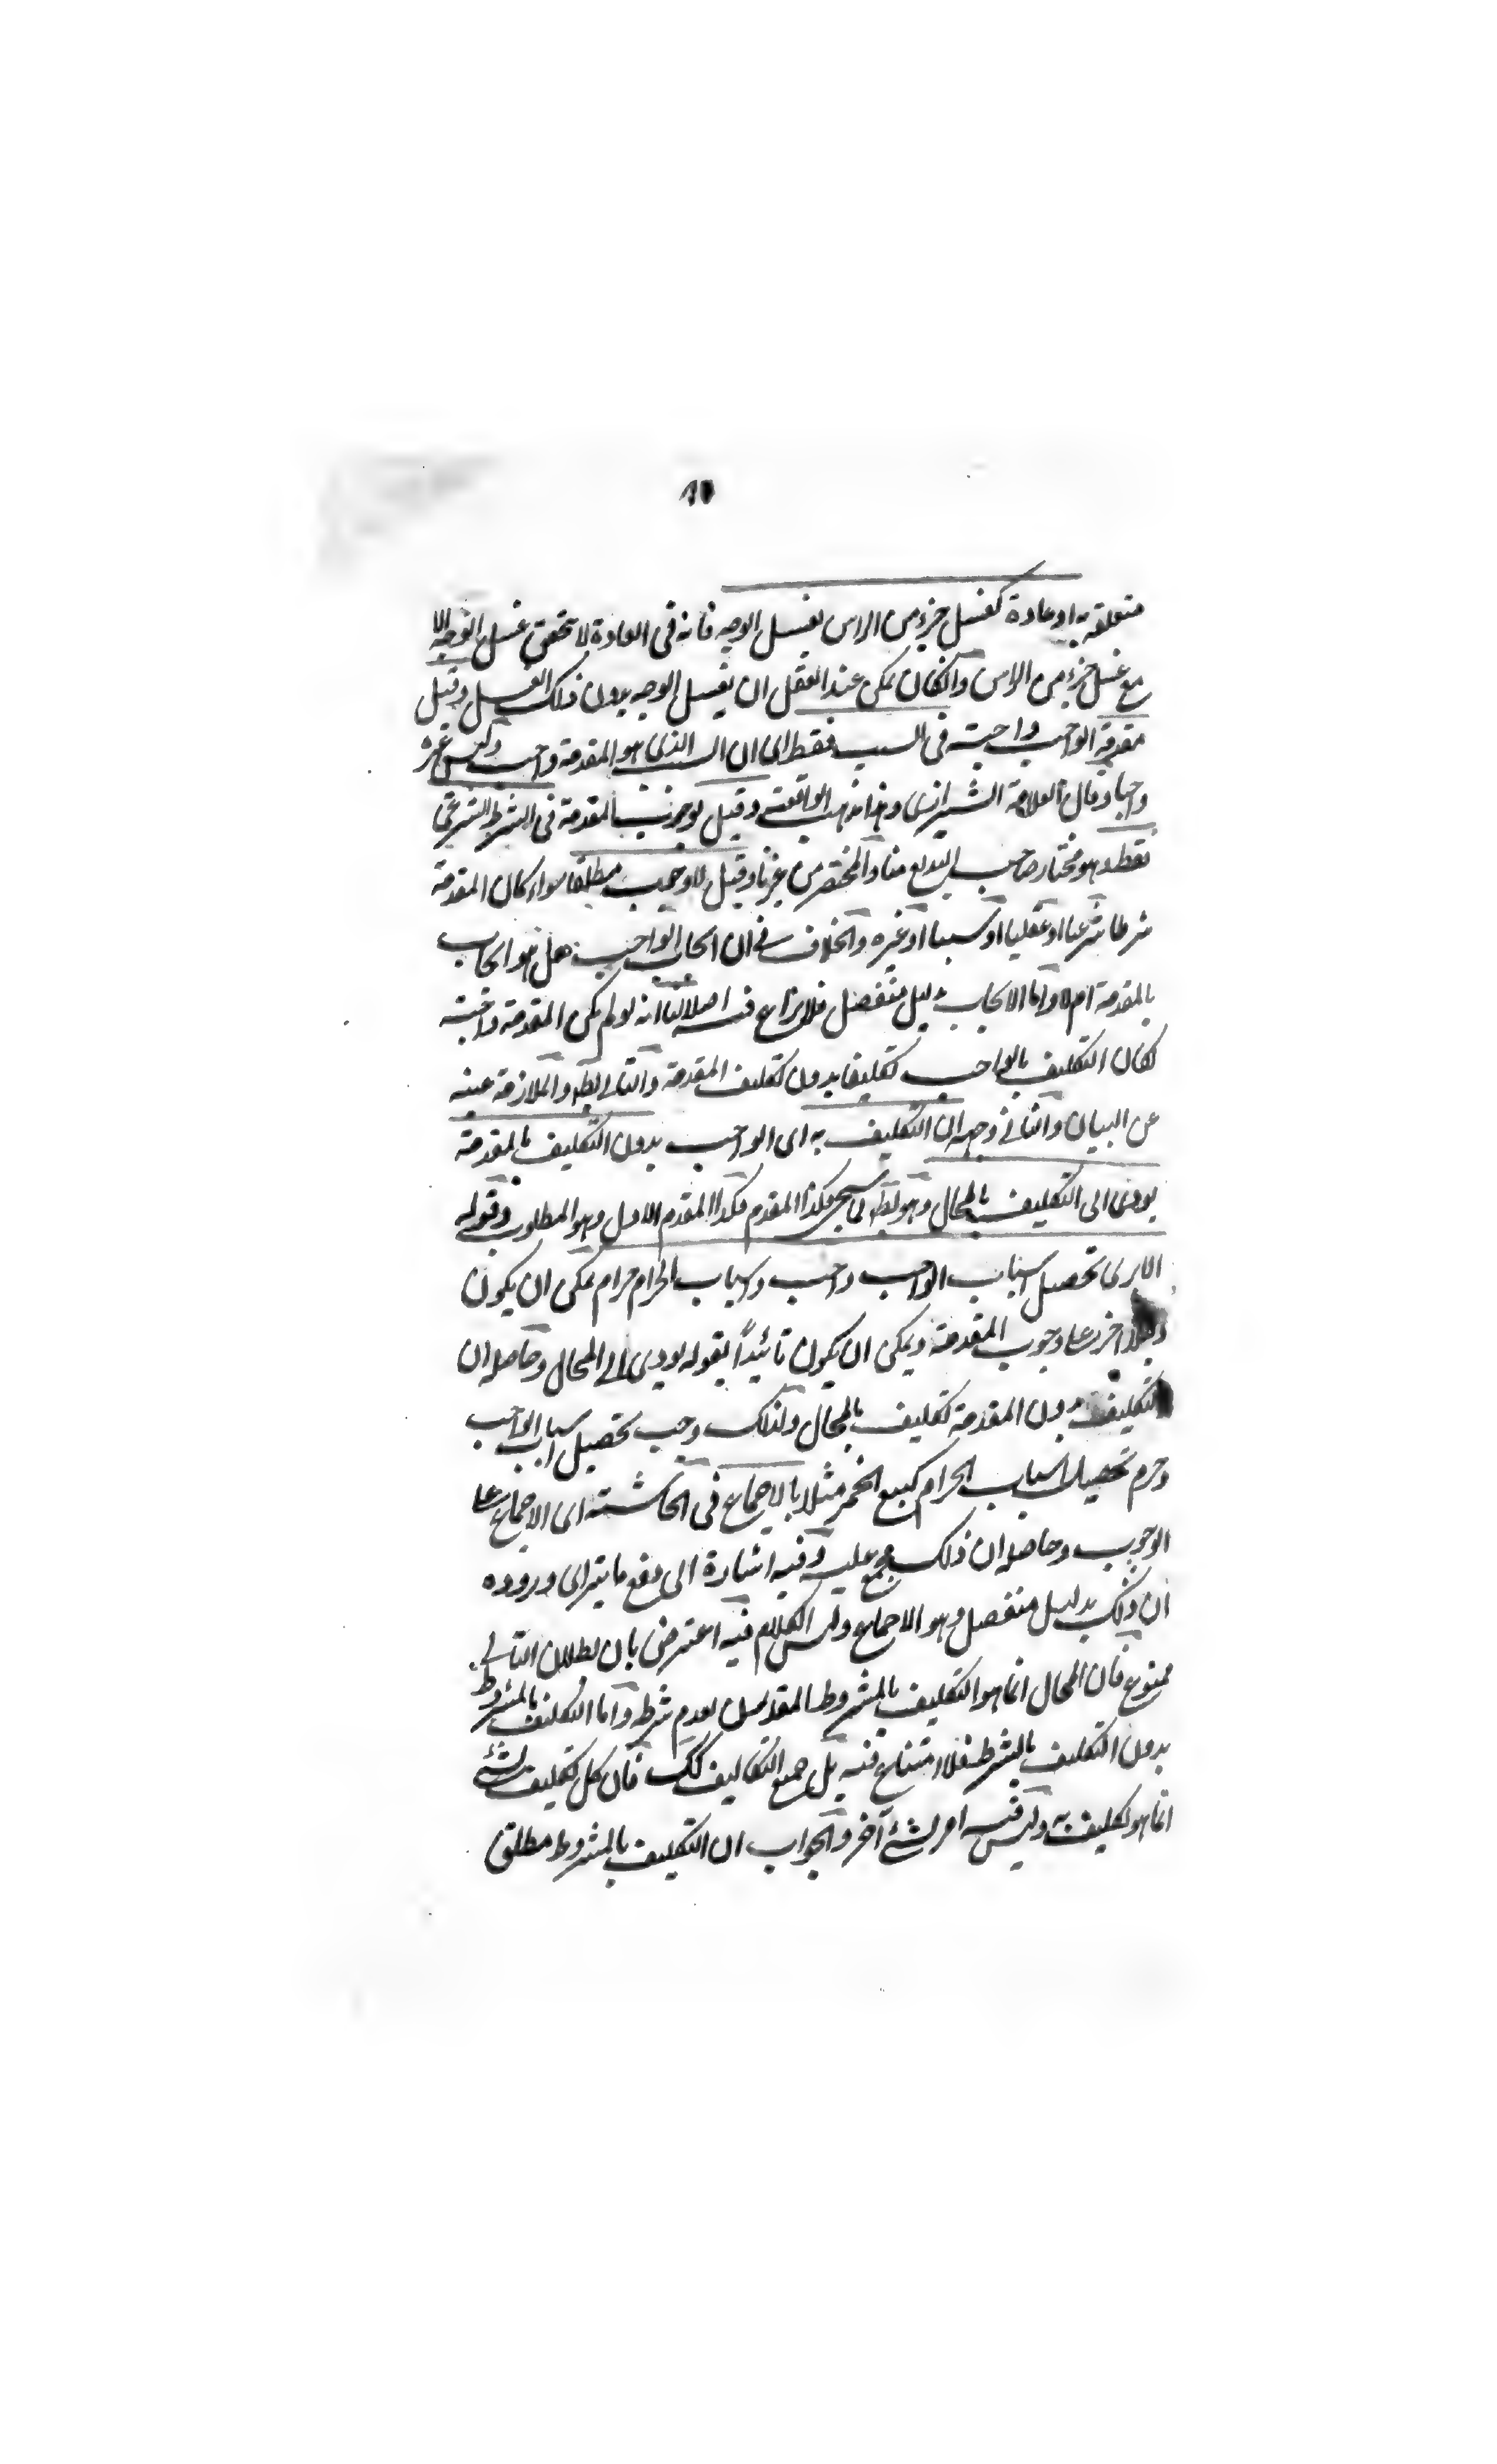 متعلقة به او عادة كغسل جزء من الراس لغسل الوجه فانه فى العادة لا يتحقق غسل الوجه الا
مع غسل جزء من الراس وانكان يمكن عند العقل ان يغسل الوجه بدون ذلك الغسل وقيل
مقدمة الواجب واجبة فى السبب فقط اى ان السبب الذى هو المقدمة واجب وليس غيره
واجبا وقال العلامة الشيرازى وهذا مذهب الواقفة وقيل بوجوب المقدمة فى الشرط الشرعى
فقط وهو مختار صاحب البديع منا والمختصر من غيرنا وقيل لا وجوب مطلقا سواء كان المقدمة
شرطا شرعيا او عقليا او سببا او غيره والخلاف فى ان ايجاب الواجب هل هو ايجاب
بالمقدمة ام لا واما الايجاب بدليل منفصل فلا نزاع فيه اصلا لنا انه لو لم يكن المقدمة واجبة
لكان التكليف بالواجب تكليفا بدون تكليف المقدمة والتالى بط والملازمة غنية
عن البيان والثانى وجهه ان التكليف به اى الواجب بدون التكليف بالمقدمة
يودى الى التكليف بالمحال وهو بط لما سيجئ فكذا المقدم فكذا المقدم الاول وهو المطلوب وقوله
الا يرى تحصيل اسباب الواجب واجب واسباب الحرام حرام يمكن ان يكون
دليلا اخر على وجوب المقدمة ويمكن ان يكون تائيدًا بقوله يودى الى المحال وحاصله ان
التكليف بدون المقدمة تكليف بالمحال ولذلك وجب تحصيل اسباب الواجب
وحرم تحصيل اسباب الحرام كبيع الخمر مثلا بالاجماع فى الحاشية اى الاجماع على
الوجوب وحاصله ان ذلك مجمع عليه وفيه اشارة الى دفع ما يترائ وروده
ان ذلك بدليل منفصل وهو الاجماع وليس الكلام فيه اعترض بان بطلان التالى
ممنوع فان المحال انما هو التكليف بالمشروط المقدس بعدم شرطه واما التكليف بالمشروط
بدون التكليف بالشرط فلا امتناع فيه بل جميع التكاليف كك فان كل تكليف بشئ
انما هو تكليف به وليس فيه امر بشئ آخر والجواب ان التكليف بالمشروط مطلق